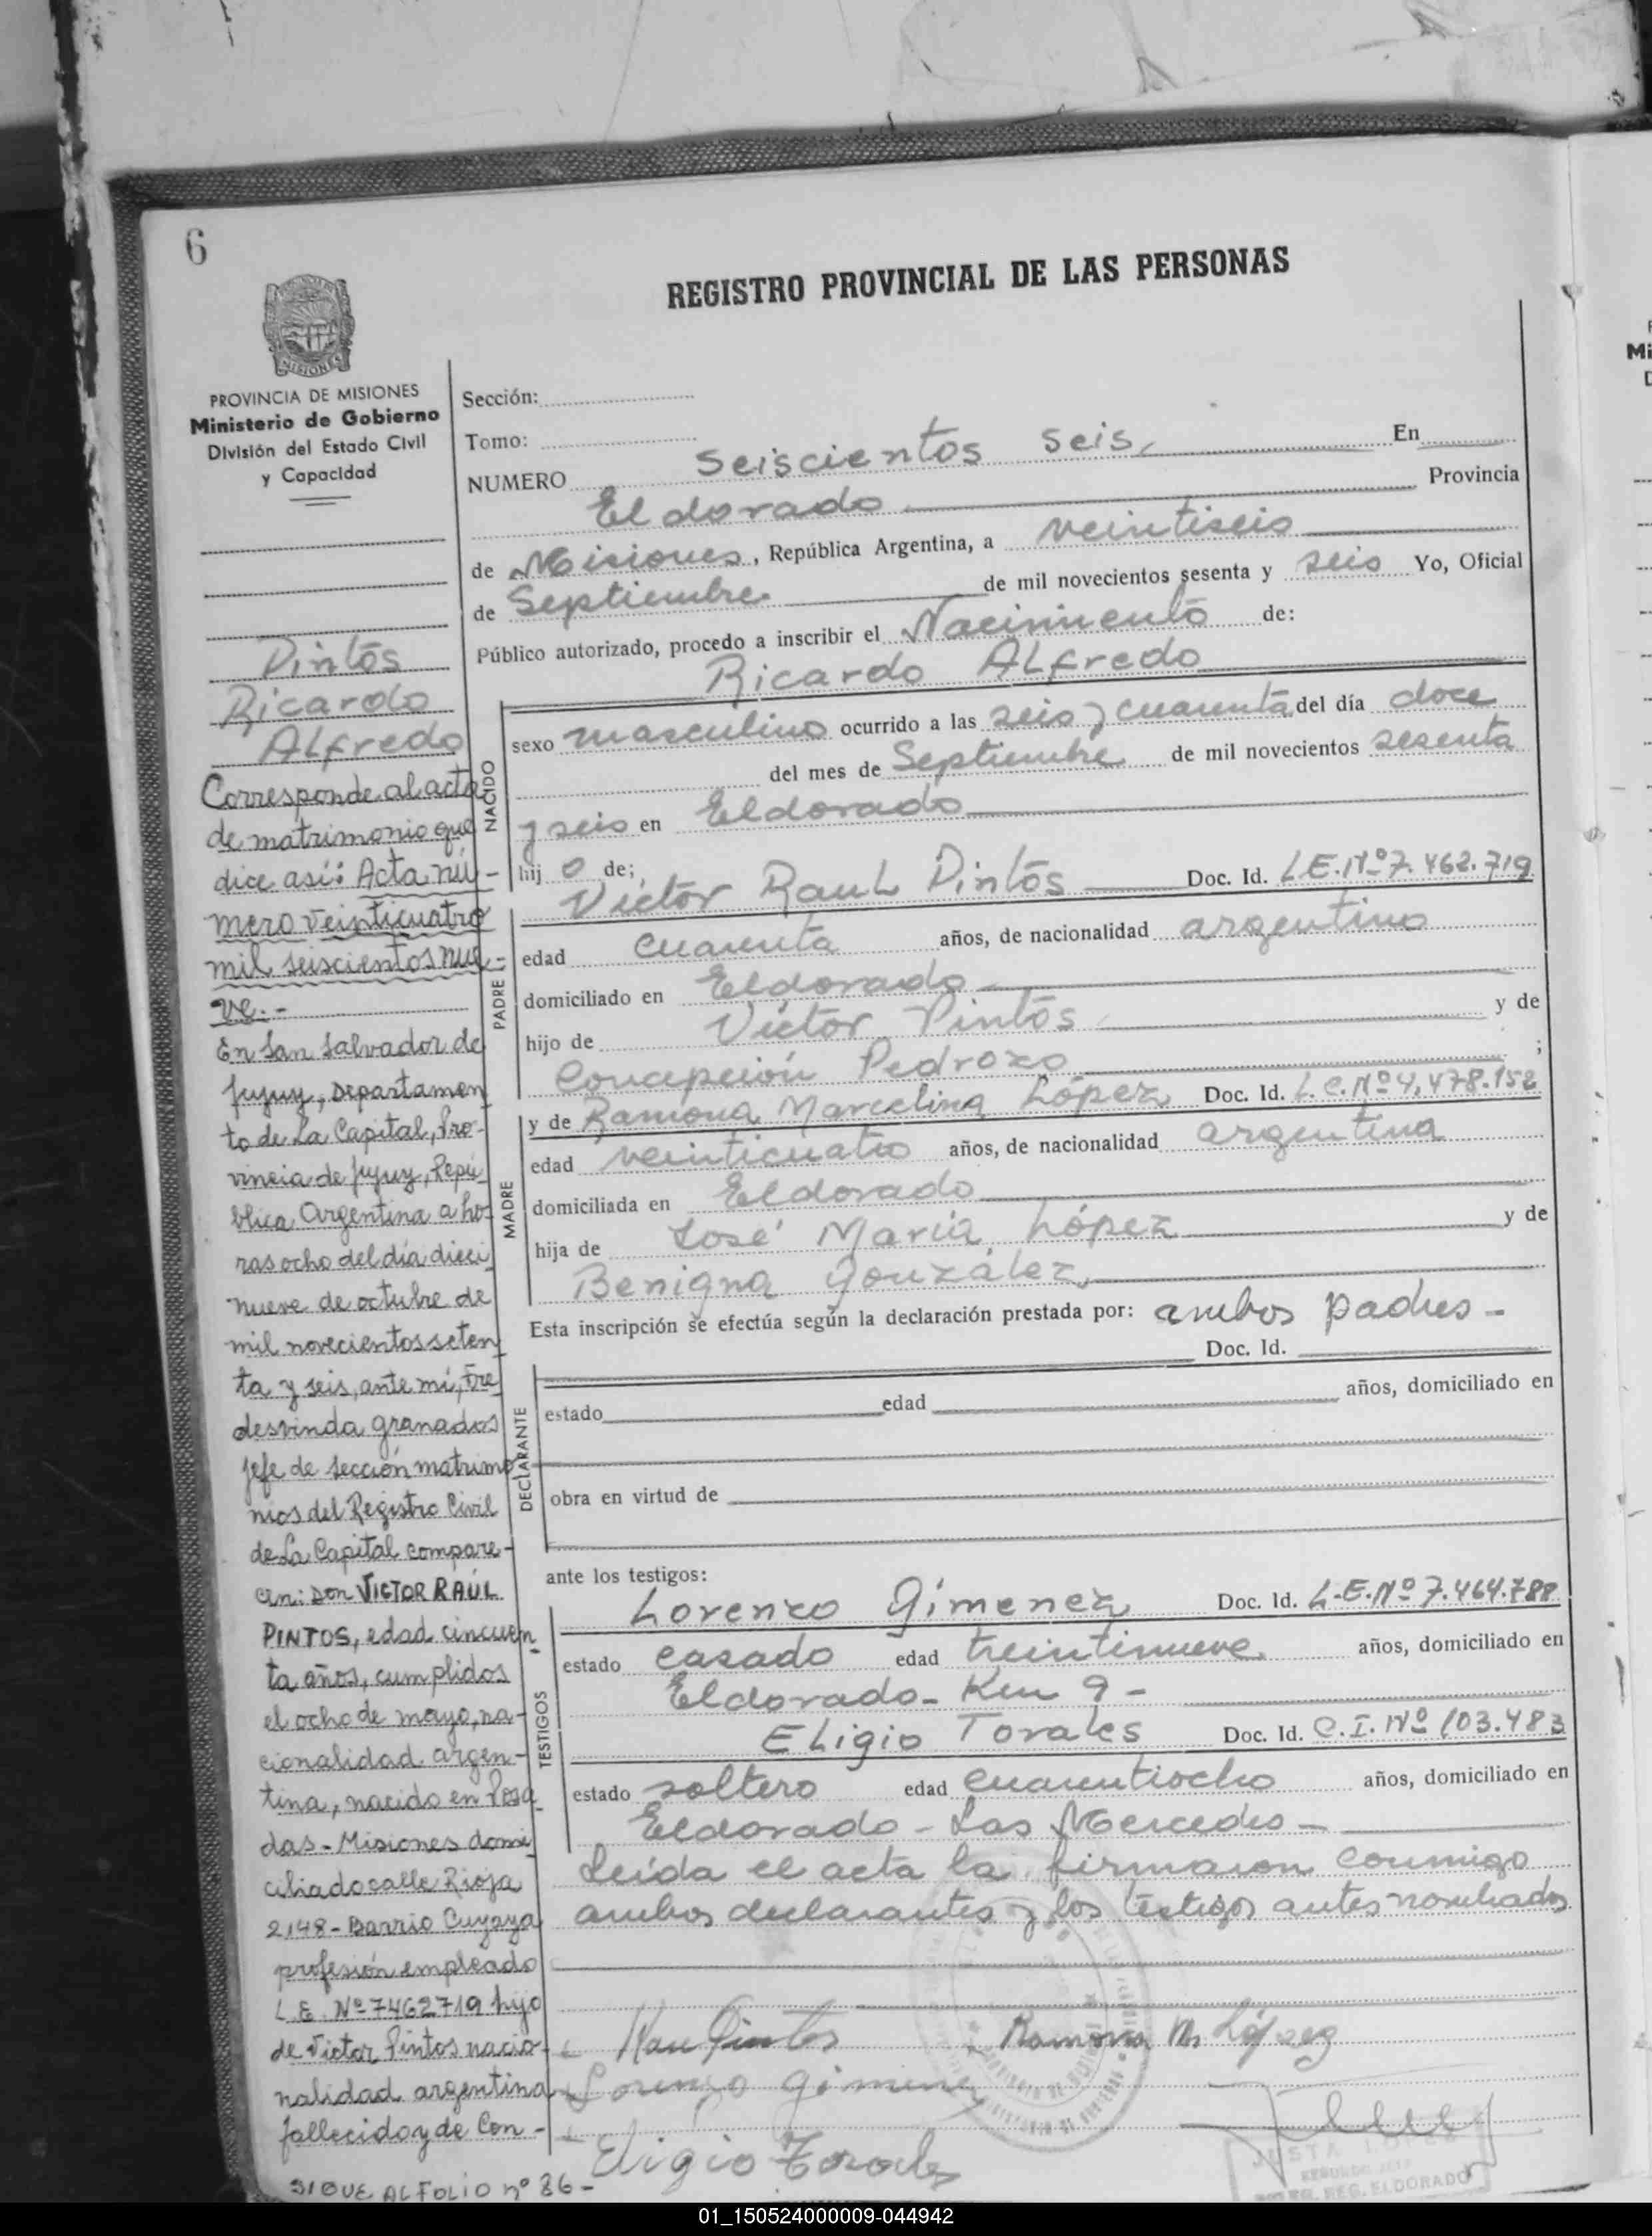 6
REGISTRO PROVINCIAL DE LAS PERSONAS
MISIONES
PROVINCIA DE MISIONES
Ministerio de Gobierno
División del Estado Civil
y Capacidad
Pintos
Ricardo
Alfredo
Corresponde al acta
de matrimonio que
dice así: Acta nú-
mero veinticuatro
mil seiscientos nue-
ve.-
En San Salvador de
Jujuy, Departamen
to de La Capital, Pro-
vincia de Jujuy, Repú-
blica Argentina a ho-
ras ocho del día dieci
nueve de octubre de
mil novecientos seten
ta y seis, ante mí, Fre
desvinda Granados
jefe de sección matrimo
nios del Registro Civil
de La Capital compare-
cen: Don VICTOR RAÚL
PINTOS, edad cincuen
ta años, cumplidos
el ocho de mayo, na-
cionalidad argen-
tina, nacido en Posa
das - Misiones domi
ciliado calle Rioja
2148 - Barrio Cuyaya
profesión empleado
L.E. Nº 7462719 hijo
de Victor Pintos nacio-
nalidad argentina
fallecido y de Con-
SIGUE AL FOLIO nº 86-
Sección:
Tomo:
NUMERO seiscientos seis, En
Eldorado Provincia
de Misiones, República Argentina, a veintiseis
de Septiembre de mil novecientos sesenta y seis Yo, Oficial
Público autorizado, procedo a inscribir el Nacimiento de:
Ricardo Alfredo
NACIDO
sexo masculino ocurrido a las seis y cuarenta del día doce
del mes de Septiembre de mil novecientos sesenta
y seis en Eldorado
hij o de;
PADRE
Victor Raul Pintos Doc. Id. L.E.Nº 7.462.719
edad cuarenta años, de nacionalidad argentino
domiciliado en Eldorado
hijo de Victor Pintos y de
Concepción Pedrozo ;
MADRE
y de Ramona Marcelina López Doc. Id. L.C.Nº 4.478.152
edad veinticuatro años, de nacionalidad argentina
domiciliada en Eldorado
hija de José María López y de
Benigna González
Esta inscripción se efectúa según la declaración prestada por: ambos padres -
DECLARANTE
Doc. Id.
estado edad años, domiciliado en
obra en virtud de
ante los testigos:
TESTIGOS
Lorenzo Gimenez Doc. Id. L.E.Nº 7.464.788
estado casado edad treintinueve años, domiciliado en
Eldorado - Km 9 -
Eligio Torales Doc. Id. C.I. Nº 103.483
estado soltero edad cuarentiocho años, domiciliado en
Eldorado - Las Mercedes -
Leída el acta la firmaron conmigo
ambos declarantes y los testigos antes nombrados
Pintos Ramona M. López
Lorenzo Gimenez
Eligio Torales
LOPEZ
REG. ELDORADO
01_150524000009-044942